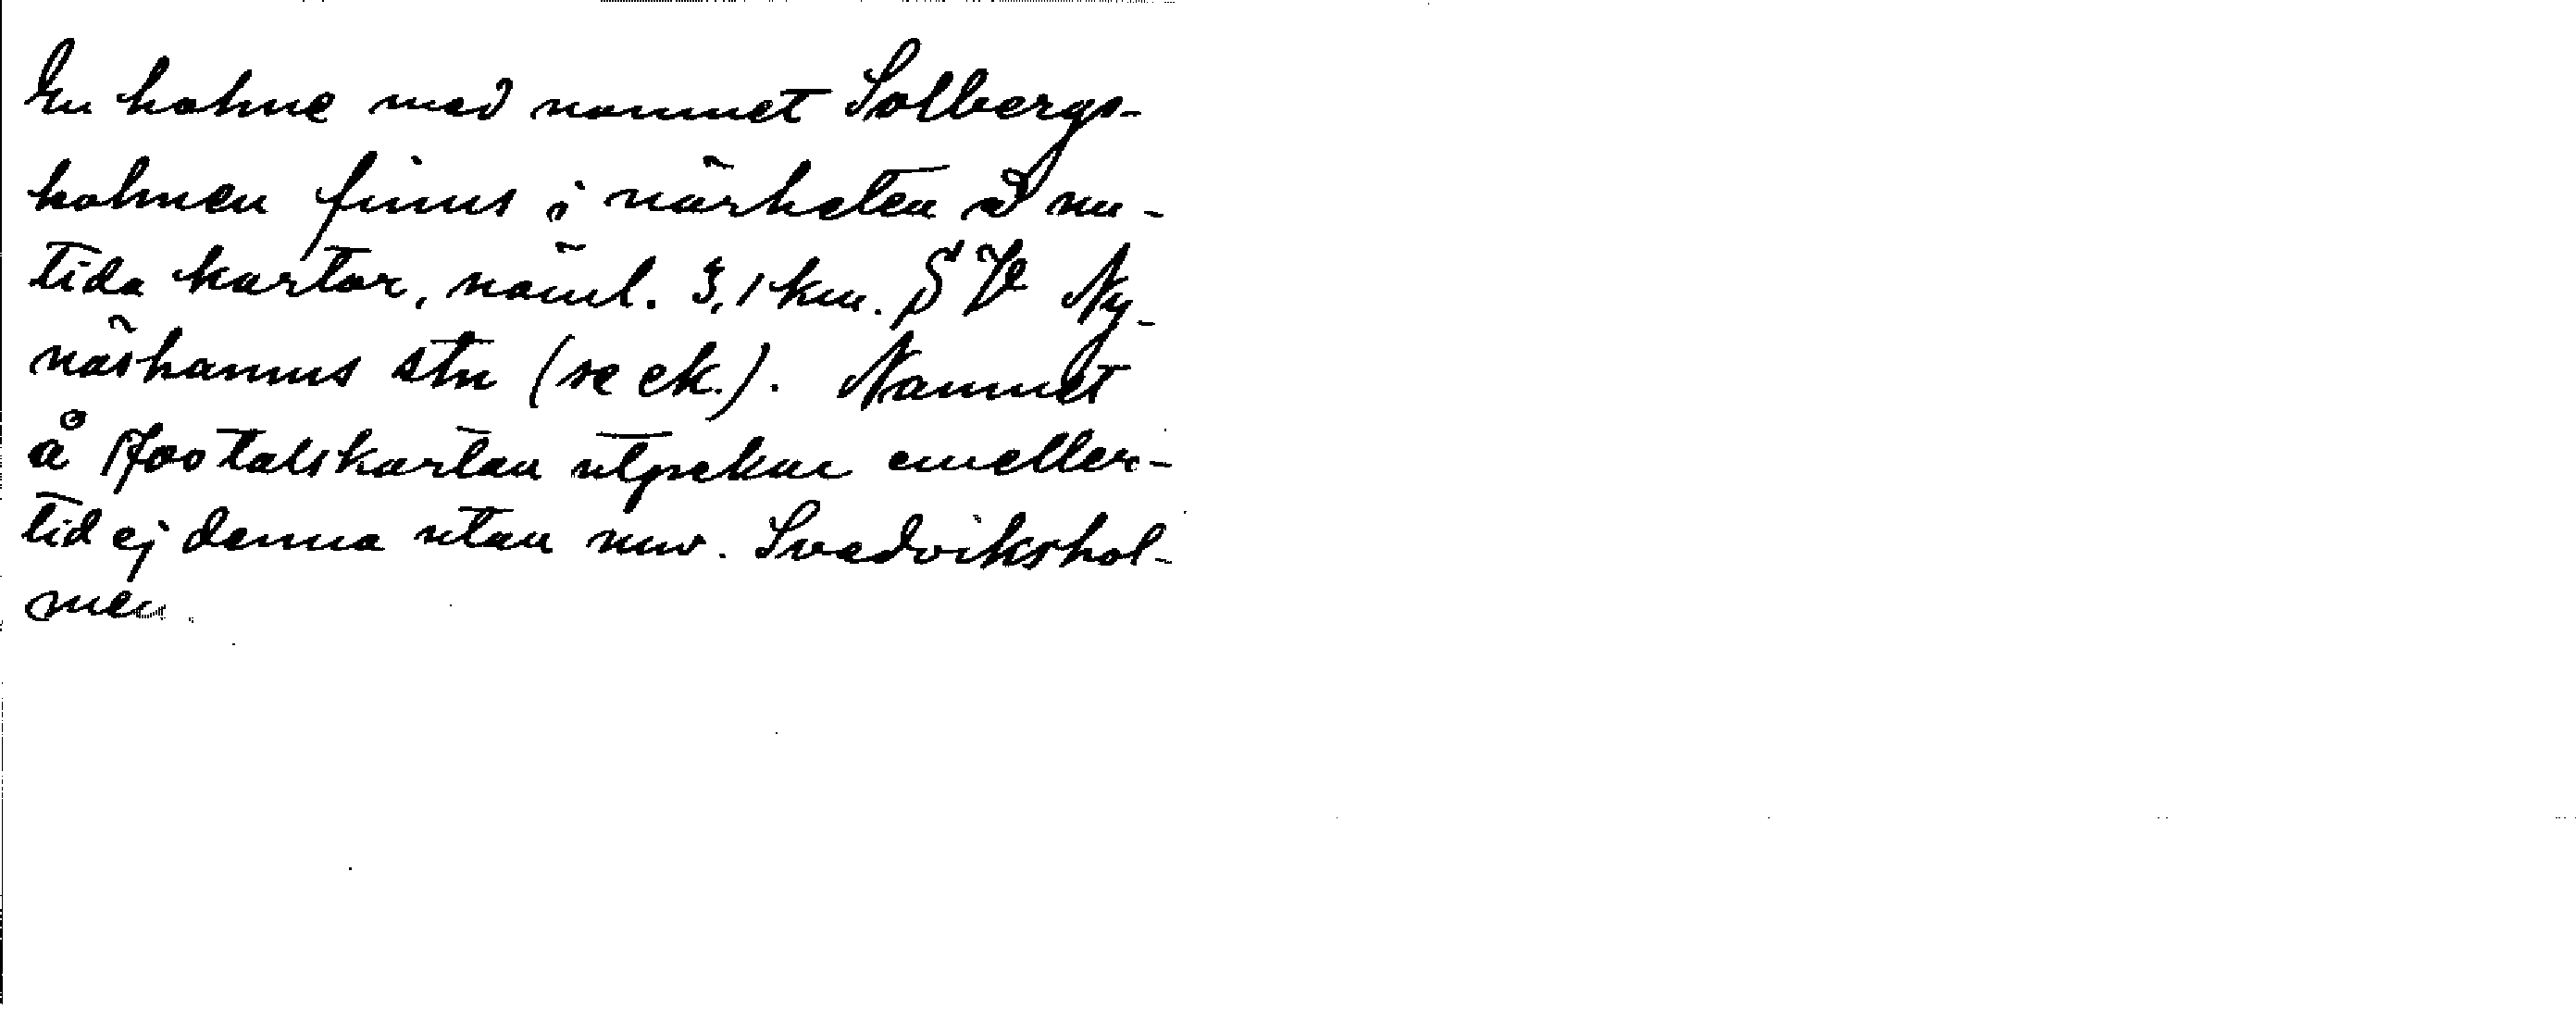 En holme med namnet Solbergs-
holmen finns i närheten å nu-
tida kartor, näml. 3,1 km. SV Ny-
näshamns stn (se ek.). Namnet
å 1700talskartan utpekar emeller-
tid ej denna utan nuv. Svedvikshol-
men.